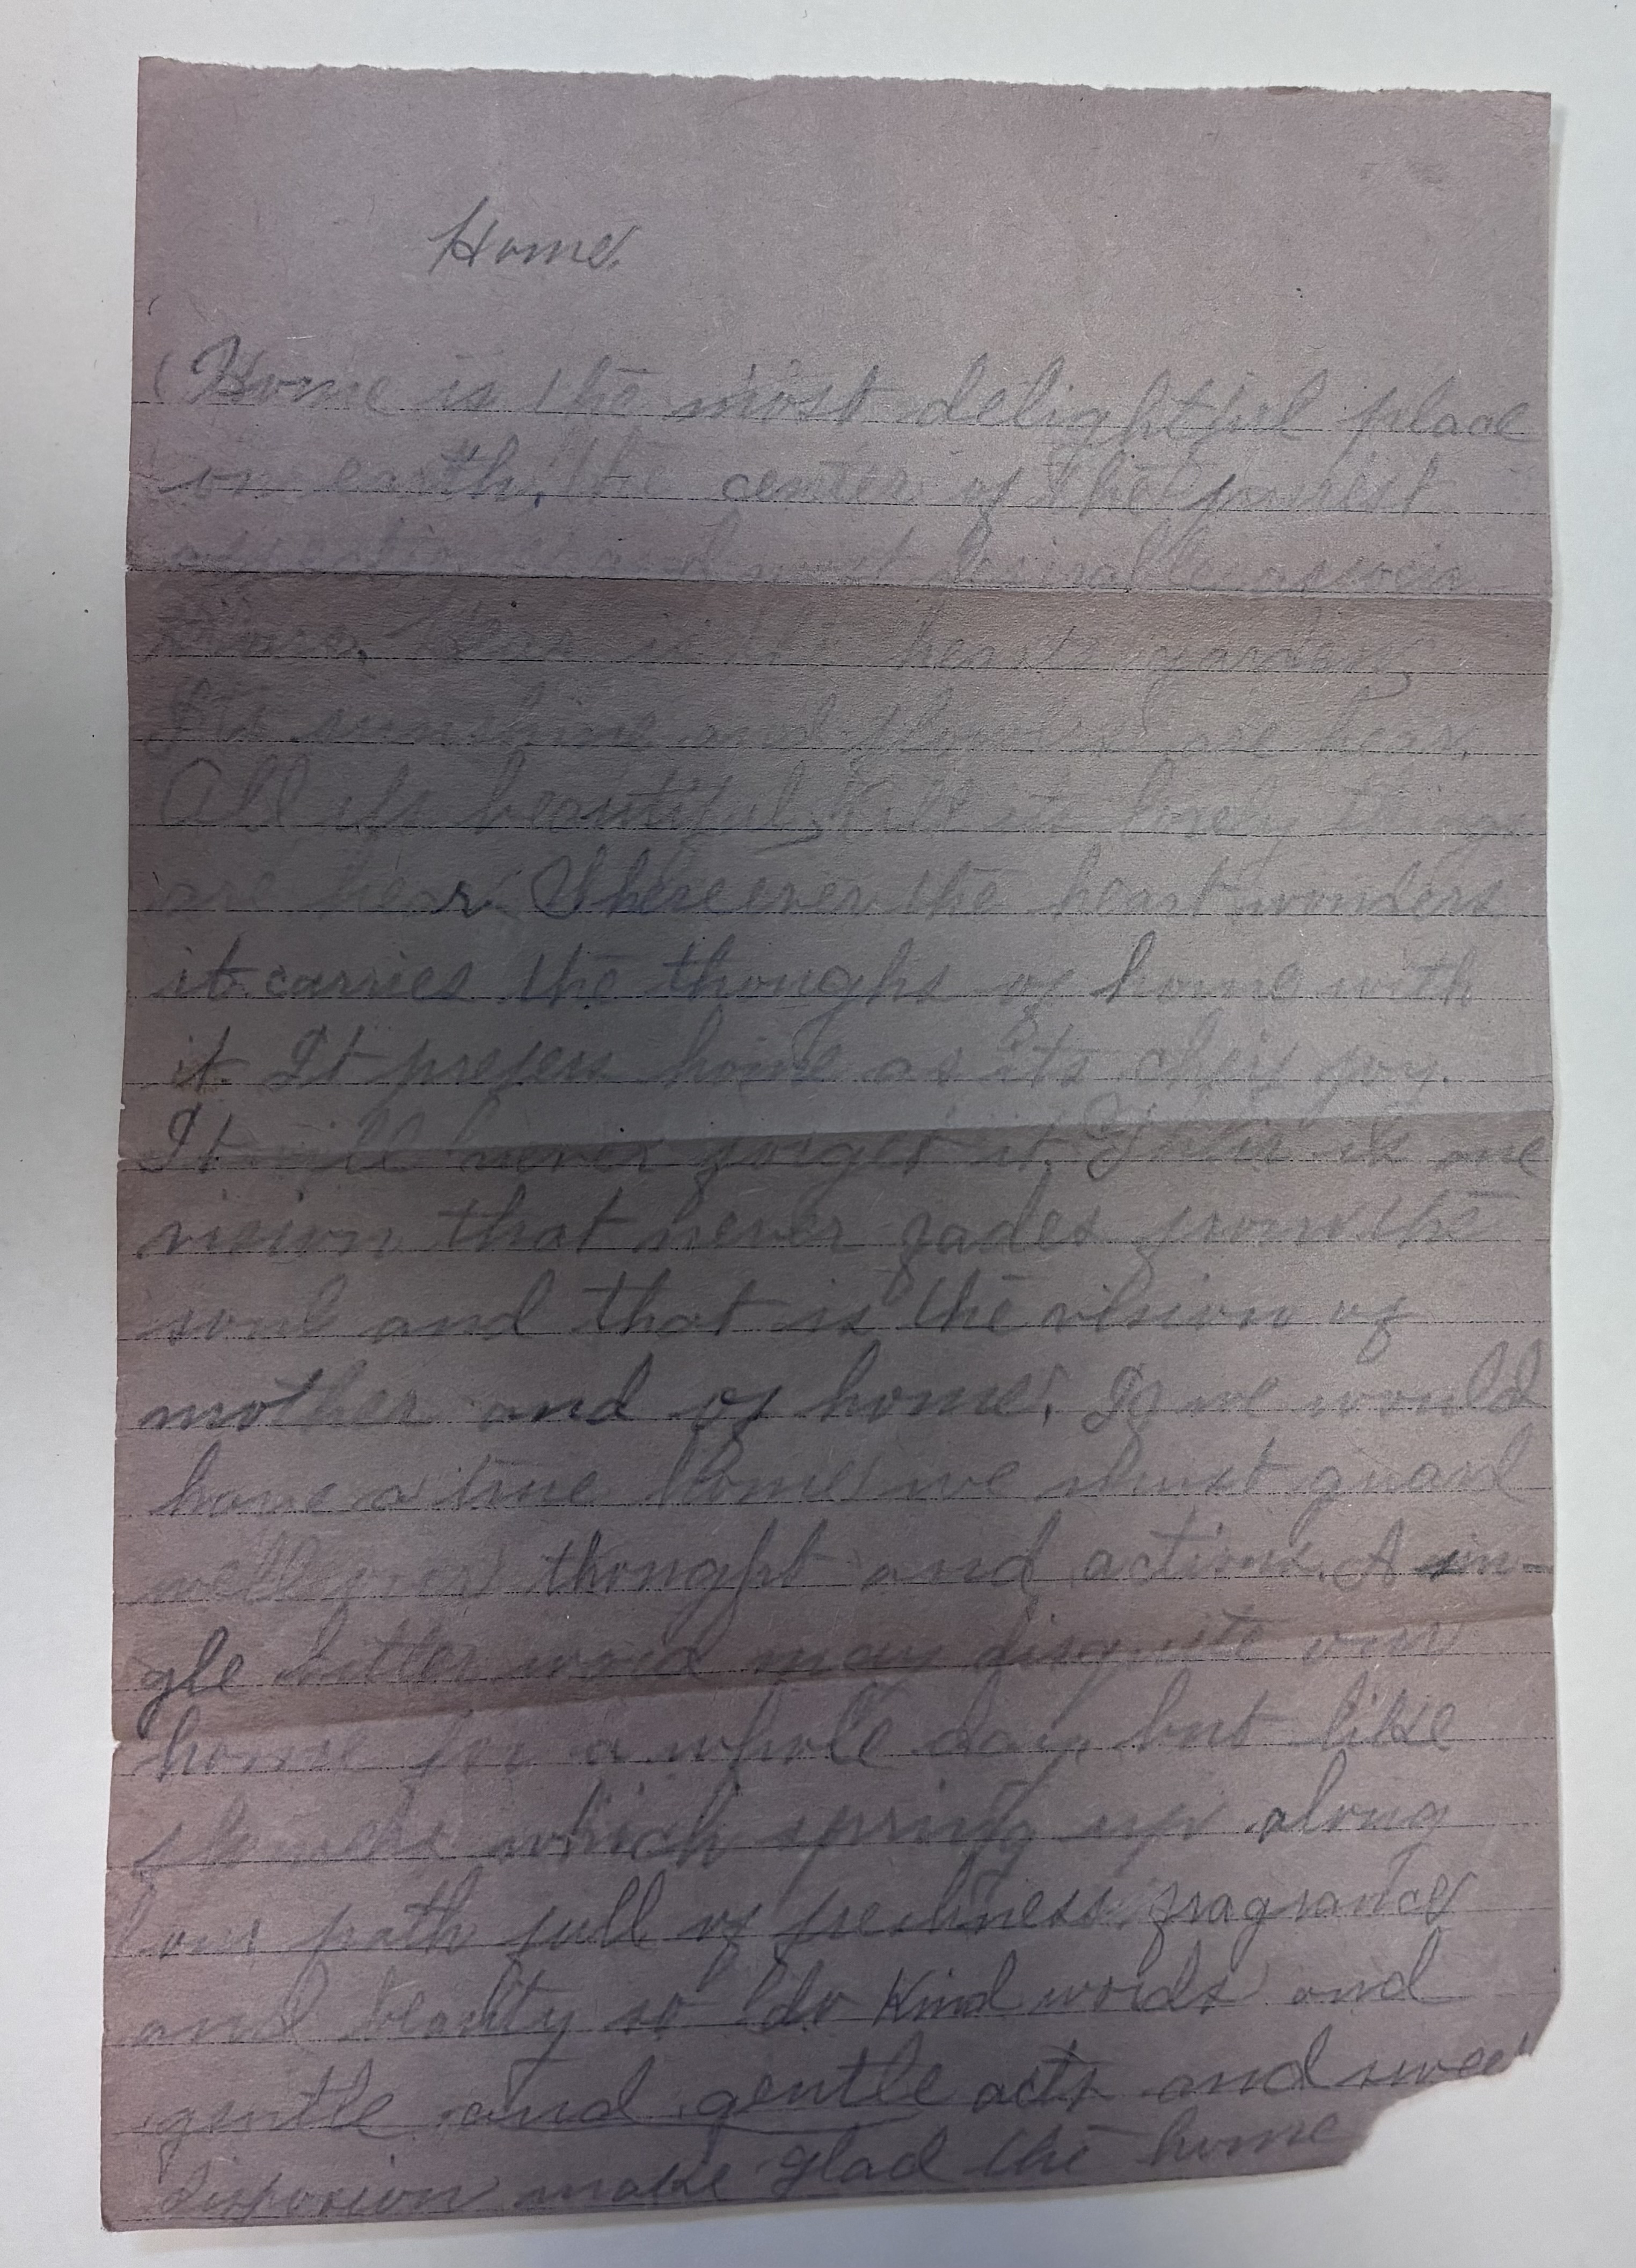 Home.
Home is the most delightful place
on earth, the center of the purest
affections and most desirable associa
tions. Hear is the hearts garden,
Its sunshine and flowers are hear.
All its beautiful, all its lovely things
are hear. Where ever the heart wonders
it carries the thoughs of home with
it. It prefers home as its cheif joy.
It will never forget it. Their is one
vision that never fades from the
soul and that is the vision of
mother and of home. If we would
have a true home we must guard
well our thought and actions. A sin-
gle bitter word may disquite our
home for a whole day, but like
flowers which spring up along
our path full of freshness fragrance
and beauty so do kind words and
gentle and gentle acts and sweet
disposion make glad the home